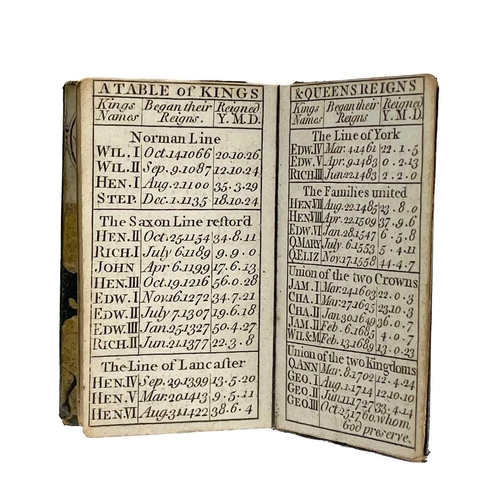 A TABLE of KINGS
Kings Names Began their Reigns. Reigned Y. M. D.
Norman Line
WIL. I Oct.14.1066 20.10.26
WIL. II Sep.9.1087 12.10.24
HEN. I Aug.2.1100 35.3.29
STEP. Dec.1.1135 18.10.24
The Saxon Line restord
HEN. II Oct.25.1154 34.8.11
RICH. I July 6.1189 9.9.0
JOHN Apr 6.1199 17.6.13
HEN. III Oct.19.1216 56.0.28
EDW. I Nov.16.1272 34.7.21
EDW. II July 7.1307 19.6.18
EDW. III Jan.25.1327 50.4.27
RICH. II Jun.21.1377 22.3.8
The Line of Lancaster
HEN. IV Sep.29.1399 13.5.20
HEN. V Mar.20.1413 9.5.11
HEN. VI Aug.31.1422 38.6.4
& QUEENS REIGNS
Kings Names Began their Reigns. Reigned Y. M. D.
The Line of York
EDW. IV Mar.4.1461 22.1.5
EDW. V Apr.9.1483 0.2.13
RICH. III Jun.22.1483 2.2.0
The Families united
HEN. VII Aug.22.1485 23.8.0
HEN. VIII Apr.22.1509 37.9.6
EDW. VI Jan.28.1547 6.5.8
Q. MARY July 6.1553 5.4.11
Q. ELIZ Nov.17.1558 44.4.7
Union of the two Crowns
JAM. I Mar.24.1603 22.0.3
CHA. I Mar.27.1625 23.10.3
CHA. II Jan.30.1649 36.0.7
JAM. II Feb.6.1685 4.0.7
WIL & M Feb.13.1689 13.0.23
Union of the two Kingdoms
Q. ANN Mar.8.1702 12.4.24
GEO. I Aug.1.1714 12.10.10
GEO. II Jun.11.1727 33.4.14
GEO. III Oct.25.1760. whom
God preserve.